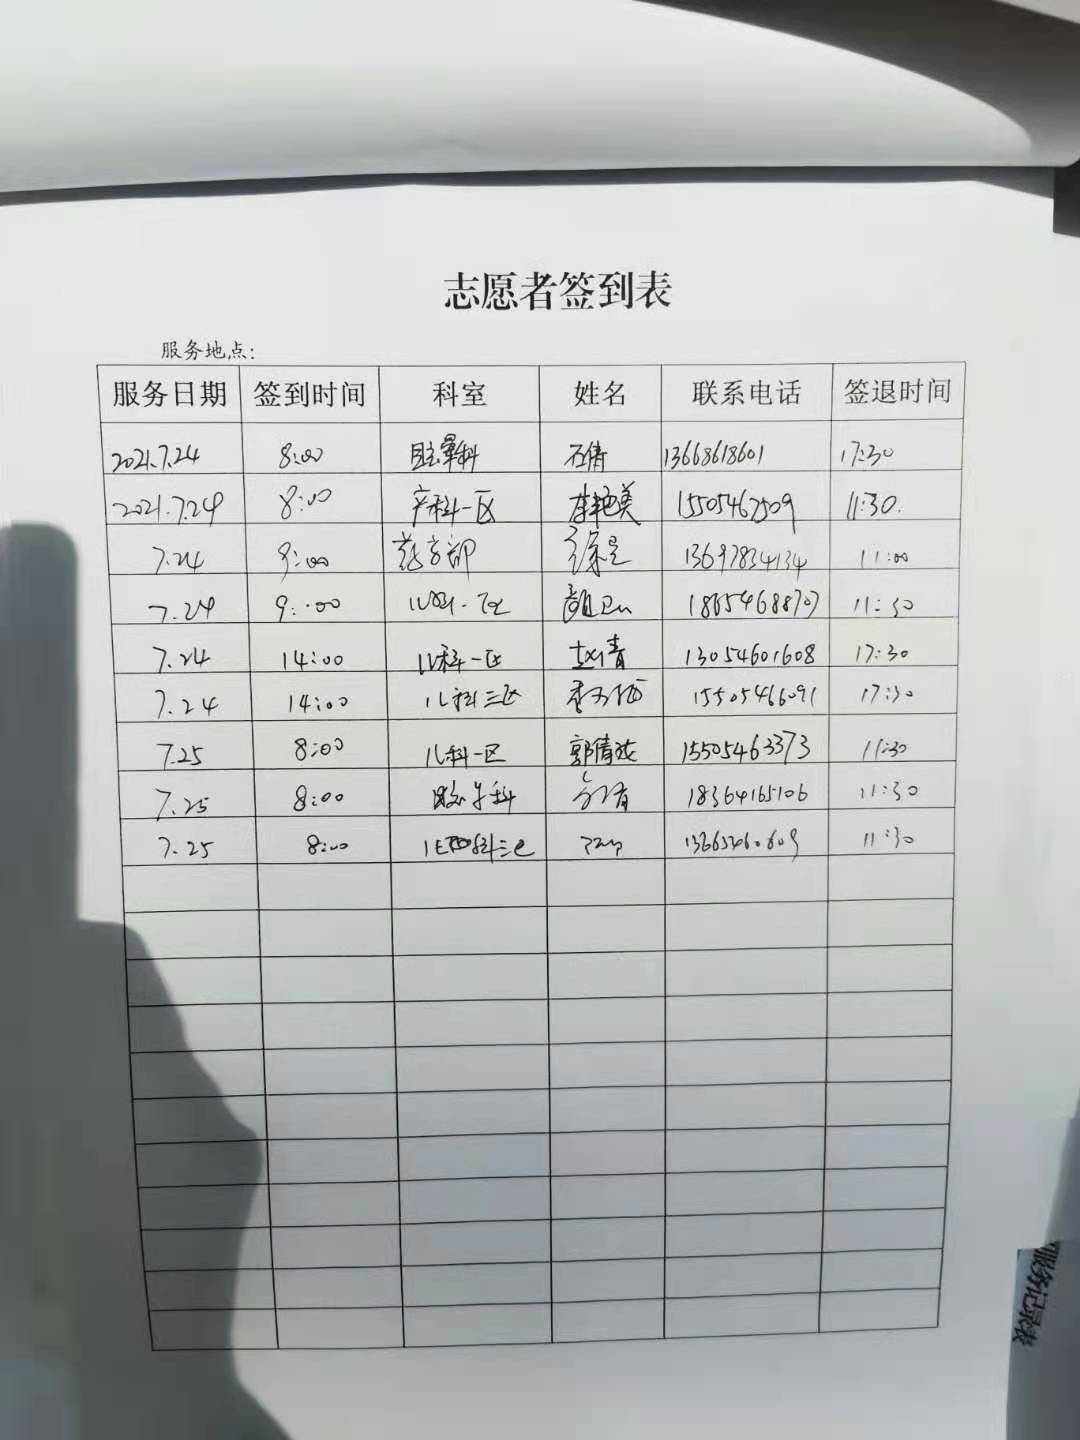 志愿者签到表
服务地点:
服务日期 签到时间 科室 姓名 联系电话 签退时间
2021.7.24 8:00 石倩 13668618601 17:30
2021.7.24 8:00 产科一区 李艳美 15505467509 11:30.
7.24 9:00 药学部 13697834134 11:00
7.24 9:00 18654688707 11:30
7.24 14:00 儿科一区 赵倩 13054601608 17:30
7.24 14:00 儿科三区 15505466091 17:30
7.25 8:00 儿科一区 郭倩 15505463373 11:30
7.25 8:00 18364165106 11:30
7.25 8:00 11:30
服务记录表